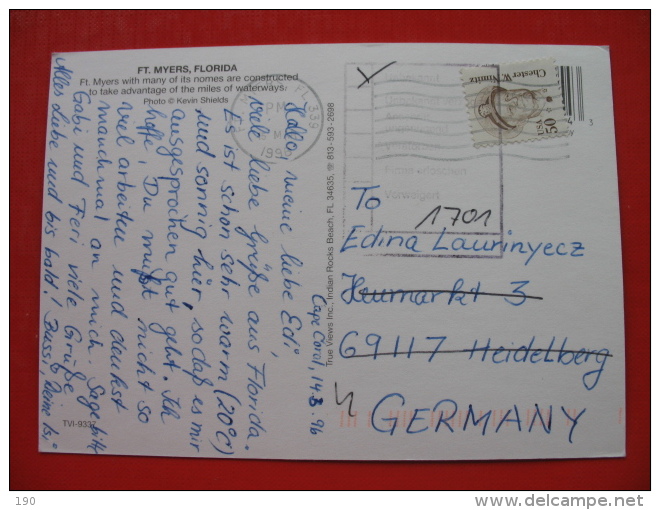 FT. MYERS, FLORIDA
Ft. Myers with many of its homes are constructed
to take advantage of the miles of waterways.
Photo © Kevin Shields
Cape Coral, 14.3.96
Hallo, meine liebe Edi
viele liebe Grüße aus Florida.
Es ist schon sehr warm (20°C)
und sonnig hier, sodaß es mir
ausgesprochen gut geht. Ich
hoffe Du mußt nicht so
viel arbeiten und denkst
manchmal an mich. Sage bitte
Gabi und Feri viele Grüße
Alles Liebe und bis bald! Bussi, Deine Isi
TVI-9337
True Views Inc., Indian Rocks Beach, FL 34635, ☏ 813-593-2698
FL 339
PM
1996
Chester W. Nimitz
USA 50
3
Firma erloschen
Verweigert
1701
To
Edina Laurinyecz
Heumarkt 3
69117 Heidelberg
GERMANY
190
delcampe.net